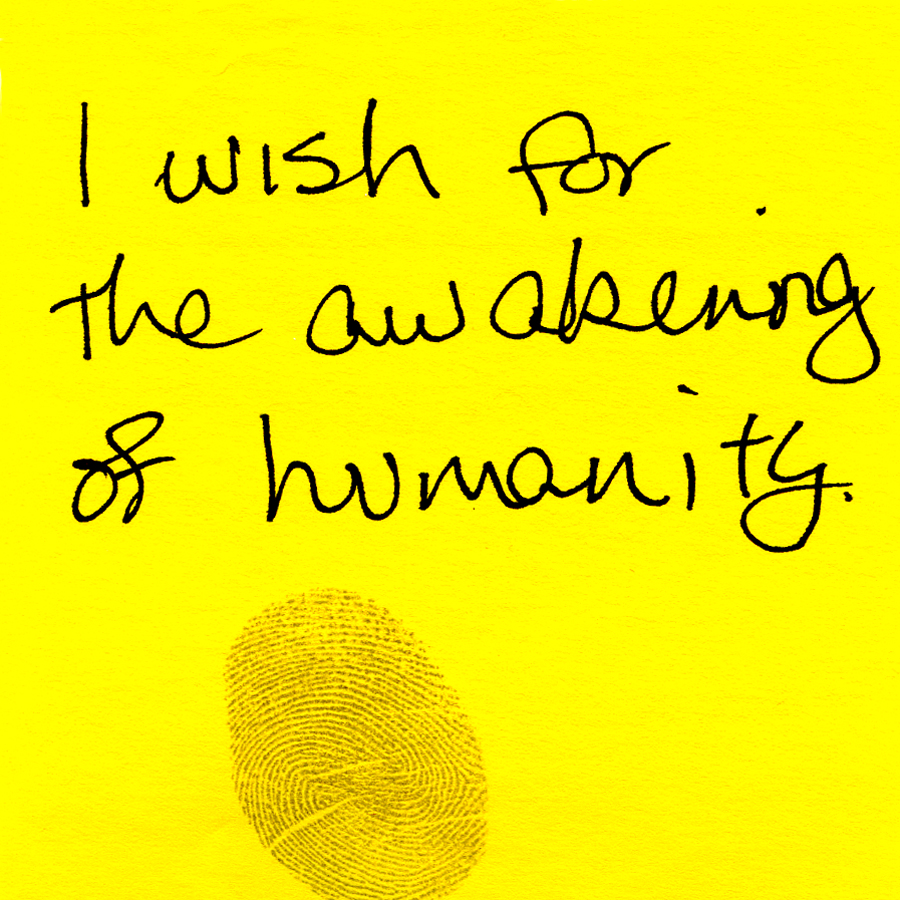 I wish for
the awakening
of humanity.